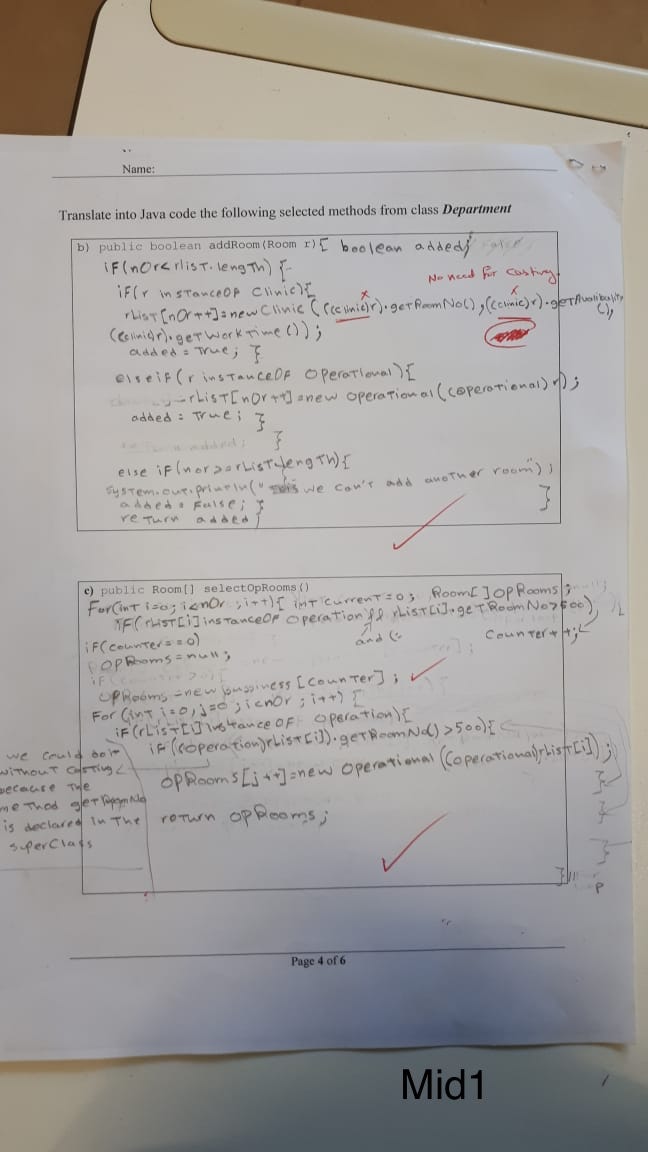 Name:
Translate into Java code the following selected methods from class Department
b) public boolean addRoom(Room r){ boolean added;
iF(nOr<rlisT.lengTh) {
No need for Casting
iF(r insTanceOF Clinic){
rLisT[nOr++]=new Clinic (((Clinic)r).geTRoomNo(),((clinic)r).geTAvalibality(),
((clinic)r).geTWorkTime());
added = True; }
elseiF(r insTanceOF OperaTional){
rLisT[nOr++]=new OperaTional((OperaTional)r);
added = True; }
}
else iF(nor>=rLisT.lengTh){
SysTem.ouT.prinTln(" we Can'T add anoTher room");
added = False; }
reTurn added }
}
c) public Room[] selectOpRooms()
For(inT i=0; i<nOr ;i++){ inT Current=0; Room[]OpRooms;
iF(rLisT[i] insTanceOF OperaTion && rLisT[i].geTRoomNo>500)
and (:
CounTer++;
iF(counTer==0)
OpRooms=null;
OpRooms=new [CounTer];
For (inT i=0,j=0;i<nOr ;i++) {
iF(rLisT[i] insTanceOF OperaTion){
iF((OperaTion)rLisT[i]).geTRoomNo() >500){
we Could do iT
wiThouT CasTing
because The
meThod geTRoomNo
is declared In The
superClass
OpRooms[j++]=new OperaTional((OperaTional)rLisT[i]);
reTurn OpRooms;
}
Page 4 of 6
Mid1